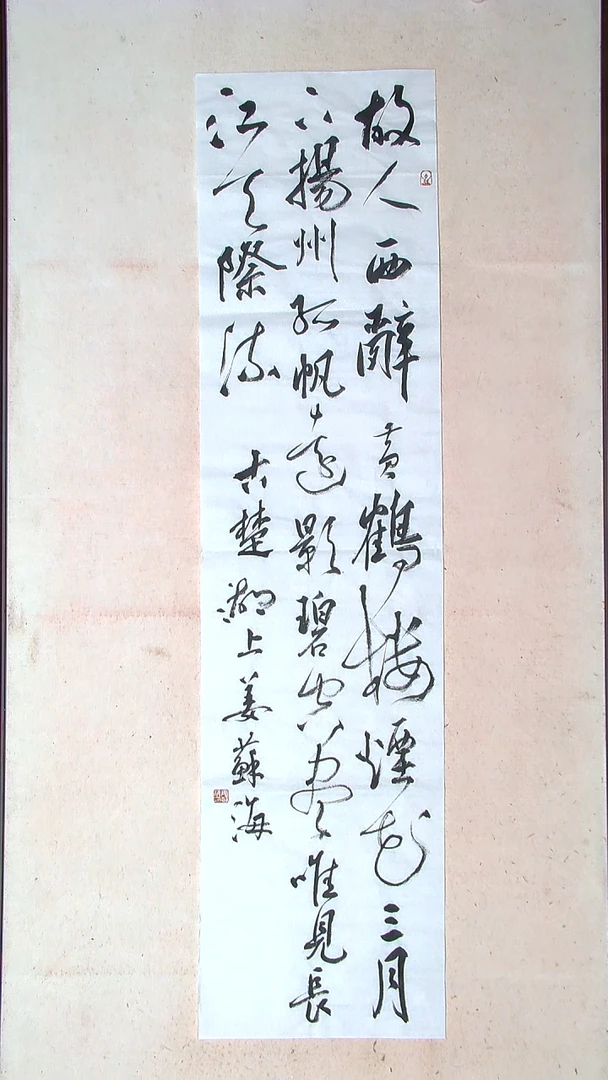 故人西辭黃鶴樓煙花三月
下揚州孤帆遠影碧空盡唯見長
江天際流
古楚湖上姜蘇海